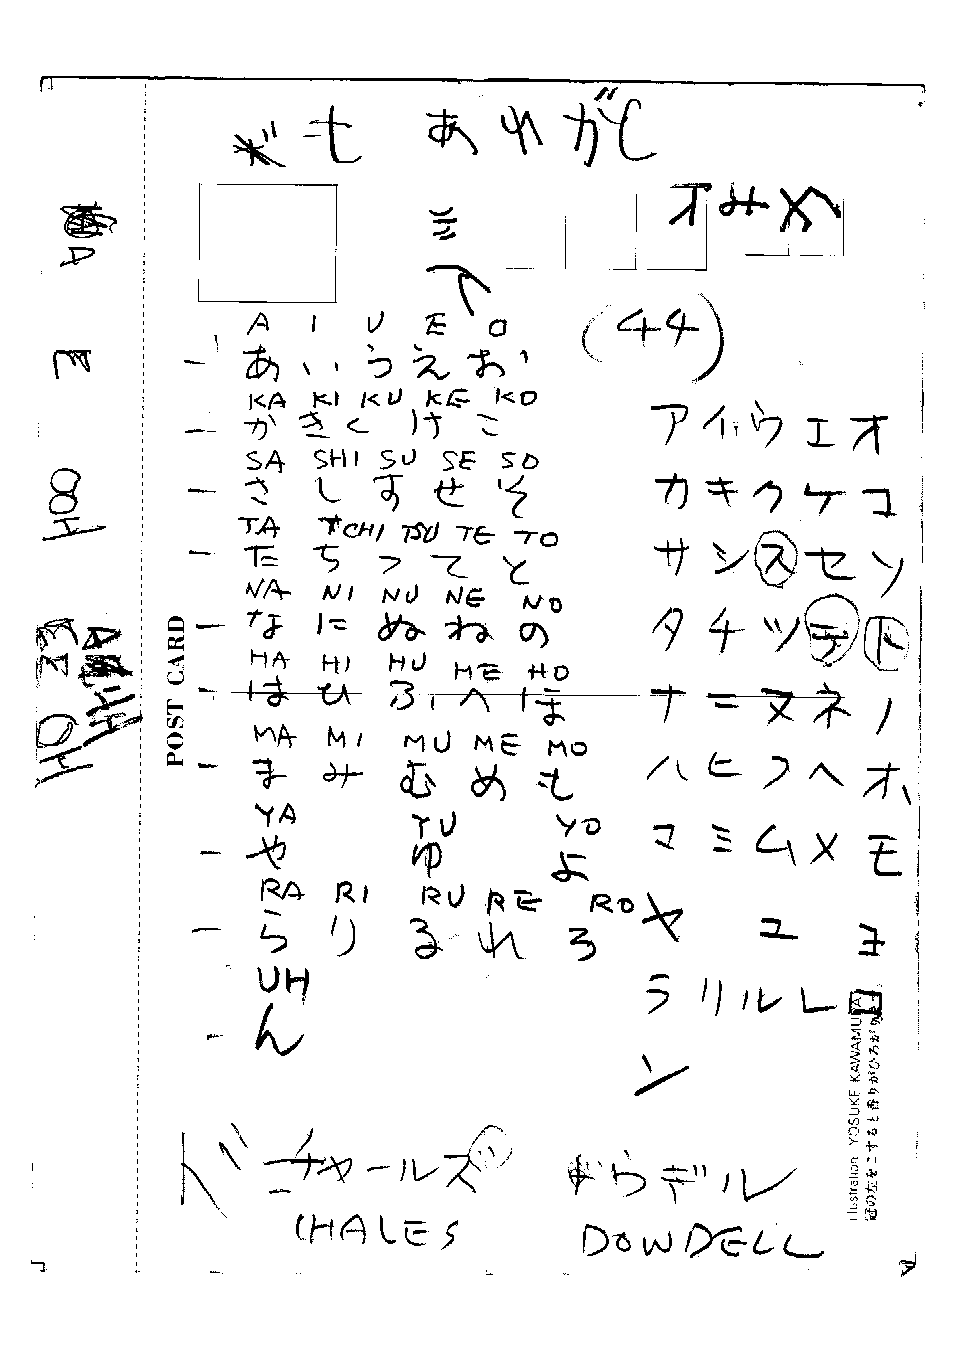 も あれがし
オみや
(44)
A I U E O
あいうえお
KA KI KU KE KO
かきくけこ
SA SHI SU SE SO
さしすせそ
TA CHI TSU TE TO
たちつてと
NA NI NU NE NO
なにぬねの
HA HI HU HE HO
はひふへほ
MA MI MU ME MO
まみむめも
YA YU YO
や ゆ よ
RA RI RU RE RO
らりるれろ
UH
ん
アイウエオ
カキクケコ
サシスセソ
タチツテト
ナニヌネノ
ハヒフヘホ
マミムメモ
ヤ ユ ヨ
ラリルレロ
ン
チャールズ ドウデル
CHALES DOWDELL
A
E
OOH
EE OH
POST CARD
Illustration YOSUKE KAWAMURA
冠の左をこすると香りがひろがります